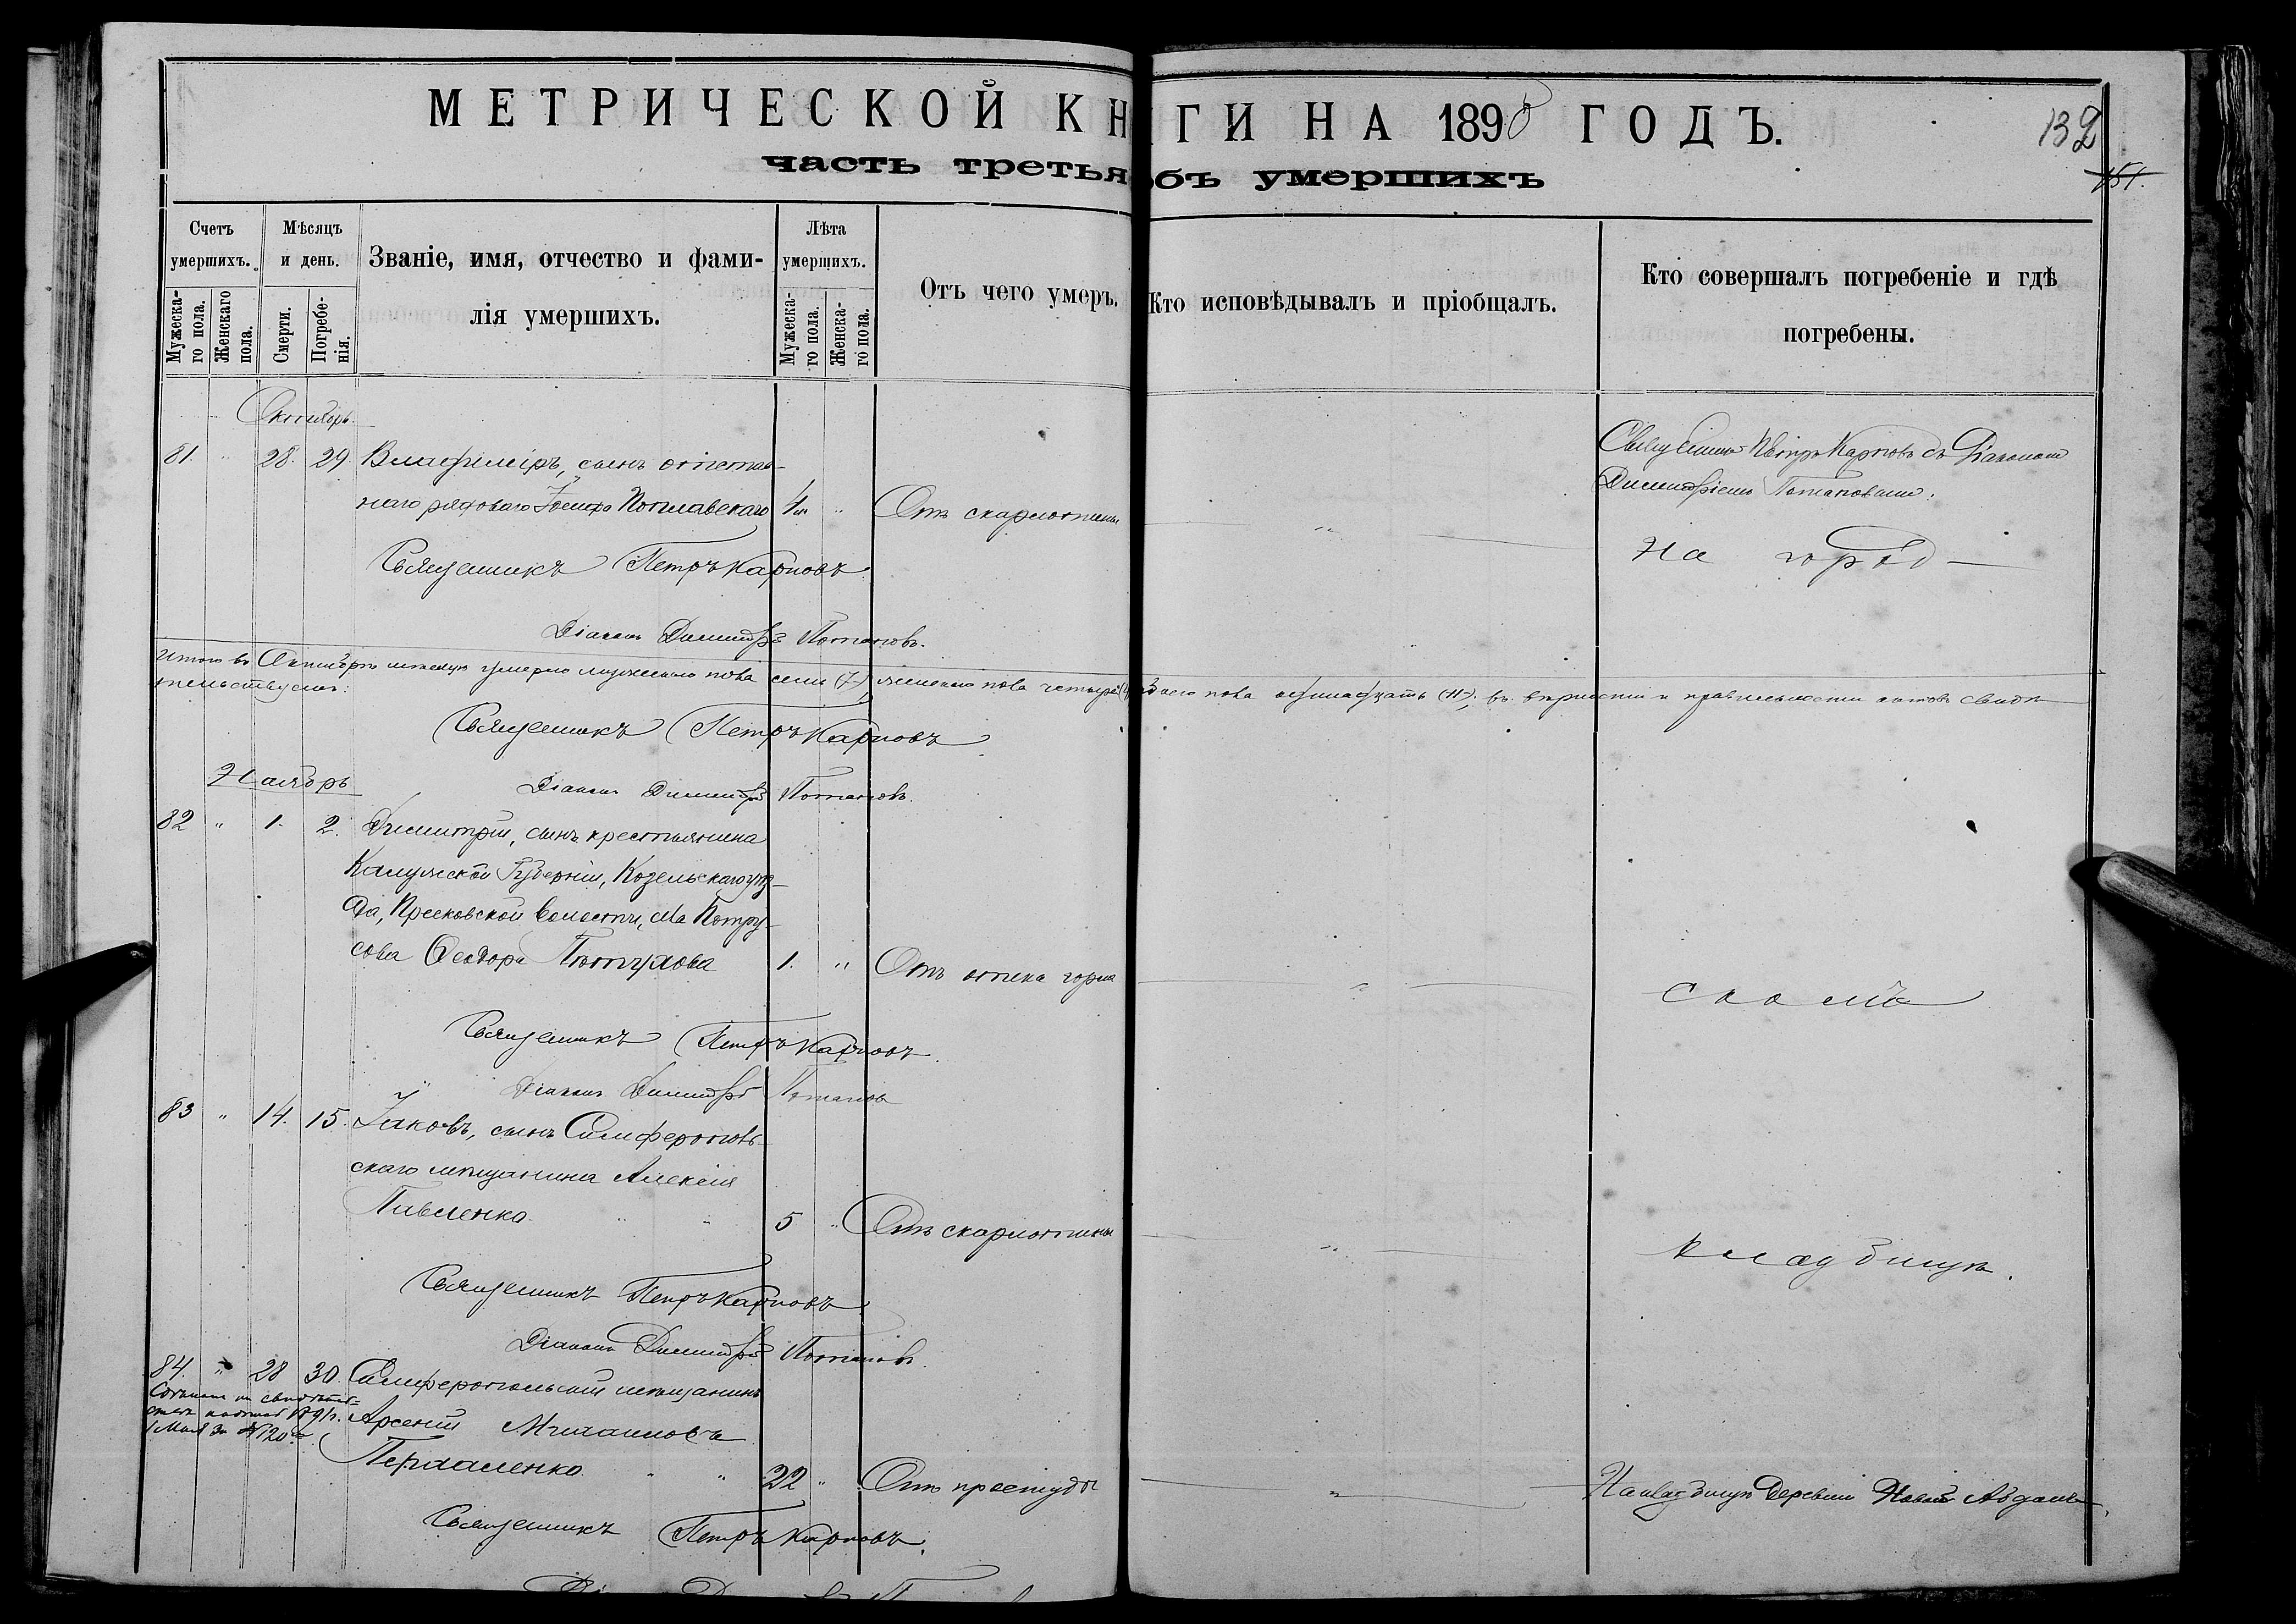 МЕТРИЧЕСКОЙ КН ГИ НА 1890 ГОДЪ.
132
151.
часть третья объ умершихъ
Счетъ умершихъ.
Мужеска-го пола.
Женскаго пола.
Мѣсяцъ и день.
Смерти.
Погребе-нія.
Званіе, имя, отчество и фами-
лія умершихъ.
Лѣта умершихъ.
Мужеска-го пола.
Женска-го пола.
Отъ чего умеръ.
Кто исповѣдывалъ и пріобщалъ.
Кто совершалъ погребеніе и гдѣ
погребены.
Октябрь.
81. " 28. 29. Владиміръ, сынъ отстав-
наго рядоваго Іосифа 4 " Отъ скарлатины
Священникъ Петръ Карповъ съ Діакономъ
Димитріемъ Потаповымъ.
На город-
Священникъ Петръ Карповъ
Діаконъ Димитрій Потаповъ.
Итого въ Октябрѣ мѣсяцѣ умерло мужескаго пола семь (7), женскаго пола четыре (4), обоего пола одинадцать (11); въ вѣрности и правильности актовъ свидѣ-
тельствуемъ:
Священникъ Петръ Карповъ
Діаконъ Димитрій Потаповъ.
Ноябрь
82 " 1. 2. Димитрій, сынъ крестьянина
Калужской Губерніи, Козельскаго уѣз-
да, волости, села
Ѳеодора Пѣтухова 1. " Отъ отека горла
скомъ
Священникъ Петръ Карповъ
Діаконъ Димитрій Потаповъ
83 " 14. 15. Іаковъ, сынъ Симферополь-
скаго мѣщанина Алексія
Павленко 5 " Отъ скарлатины
кладбищѣ.
Священникъ Петръ Карповъ
Діаконъ Димитрій Потаповъ.
84. " 28 30. Симферопольскій мѣщанинъ
Арсеній Михаиловъ
22 " Отъ простуды
На кладбищѣ деревни Новой Абдалъ.
1891 г.
1 Мая за № 120.
Священникъ Петръ Карповъ.